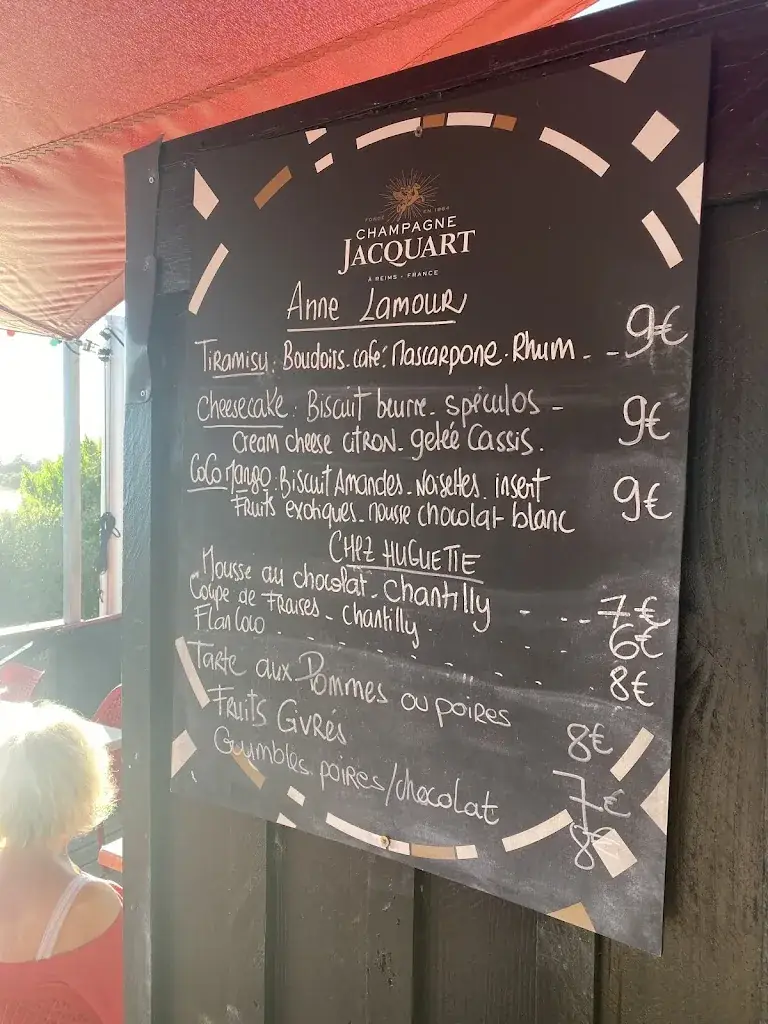 FONDÉ EN 1964
CHAMPAGNE
JACQUART
À REIMS - FRANCE
Anne Lamour
Tiramisu. Boudoirs. café. Mascarpone. Rhum - - 9€
Cheesecake: Biscuit beurre - spéculos - 9€
Cream cheese citron - gelée Cassis.
Coco Mango. Biscuit Amandes. Noisettes. insert 9€
Fruits exotiques. mousse chocolat blanc
CHEZ HUGUETTE
Mousse au chocolat - Chantilly - . . . 7€
Coupe de Fraises - Chantilly . . . 6€
Flan Coco - - - - - - - 8€
Tarte aux Pommes ou poires 8€
Fruits Givrés 7€
Crumbles poires/chocolat 8€